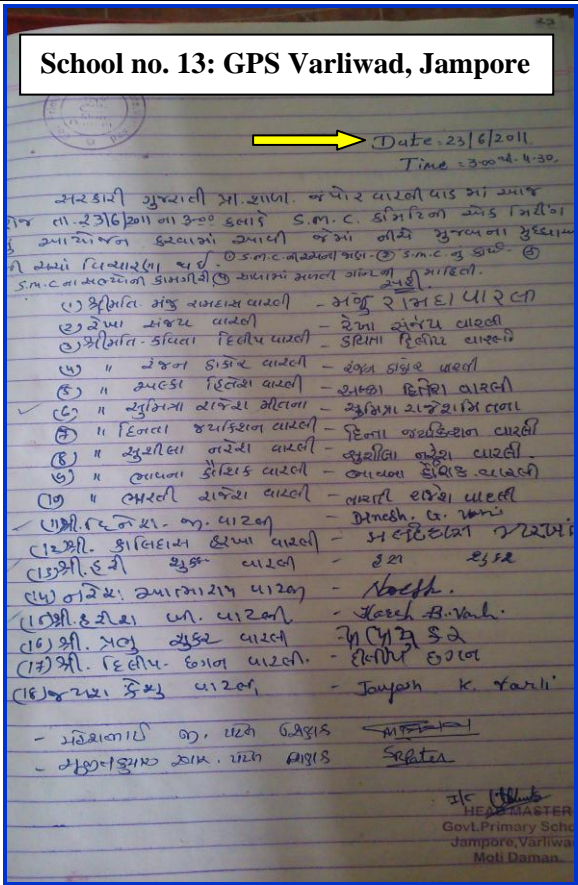 School no. 13: GPS Varliwad, Jampore
Date: 23/6/2011
Time = 3:00 4.30.
સરકારી ગુજરાતી પ્રા. શાળા. જંપોર વારલીવાડ માં આજ
તા. 23/6/2011 ના 3:00 કલાકે S.M.C. કમિટિની એક મિટીંગ
આયોજન કરવામાં આવી જેમાં નીચે મુજબના
ની ચર્ચા વિચારણા થઈ. S.M.C. S.M.C. નું કાર્ય
S.M.C ના સભ્યોની કામગીરી માહિતી.
(૧) શ્રીમતિ મંજુ રામદાસ વારલી - મંજુ રામદા વારલી
(2) રેખા સંજય વારલી - રેખા સંજય વારલી
(૩) શ્રીમતિ - કવિતા દિલીપ વારલી - કવિતા દિલીપ વારલી
(૪) " રંજન ઠાકોર વારલી - રંજન ઠાકોર વારલી
(૫) " અલ્કા હિતેશ વારલી - અલ્કા હિતેશ વારલી
(૬) " સુમિત્રા રાજેશ મીતના - સુમિત્રા રાજેશ મિતના
(૭) " હિનતા જયકિશન વારલી - હિન્તા જયકિશન વારલી
(૮) " સુશીલા નરેશ વારલી - સુશીલા નરેશ વારલી.
(૯) " ભાવના કૌશિક વારલી - ભાવના કૌશિક વારલી
(૧૦) " ભારતી રાજેશ વારલી - ભારતી રાજેશ વારલી
(૧૧) શ્રી. દિનેશ. જી. વારલી - Dinesh. G. Varli
(૧૨) શ્રી. કાલિદાસ હરખા વારલી -
(૧૩) શ્રી. હરી શુકર વારલી - હરી શુકર
(૧૪) નરેશ આત્મારામ વારલી - Naresh.
(૧૫) શ્રી. હરીશ બી. વારલી - Haresh .B. Varli.
(૧૬) શ્રી. પ્રભુ શુકર વારલી - પ્રભુ શુકર
(૧૭) શ્રી. દિલીપ - છગન વારલી. - દીલીપ છગન
(૧૮) જયેશ કેશુ વારલી, - Jayesh K. Varli
- મહેશભાઈ જી. પટેલ શિક્ષક
- આર. પટેલ શિક્ષક SRPatel
I/c
HEAD MASTER
Govt.Primary Scho
Jampore,Varliwa
Moti Daman.